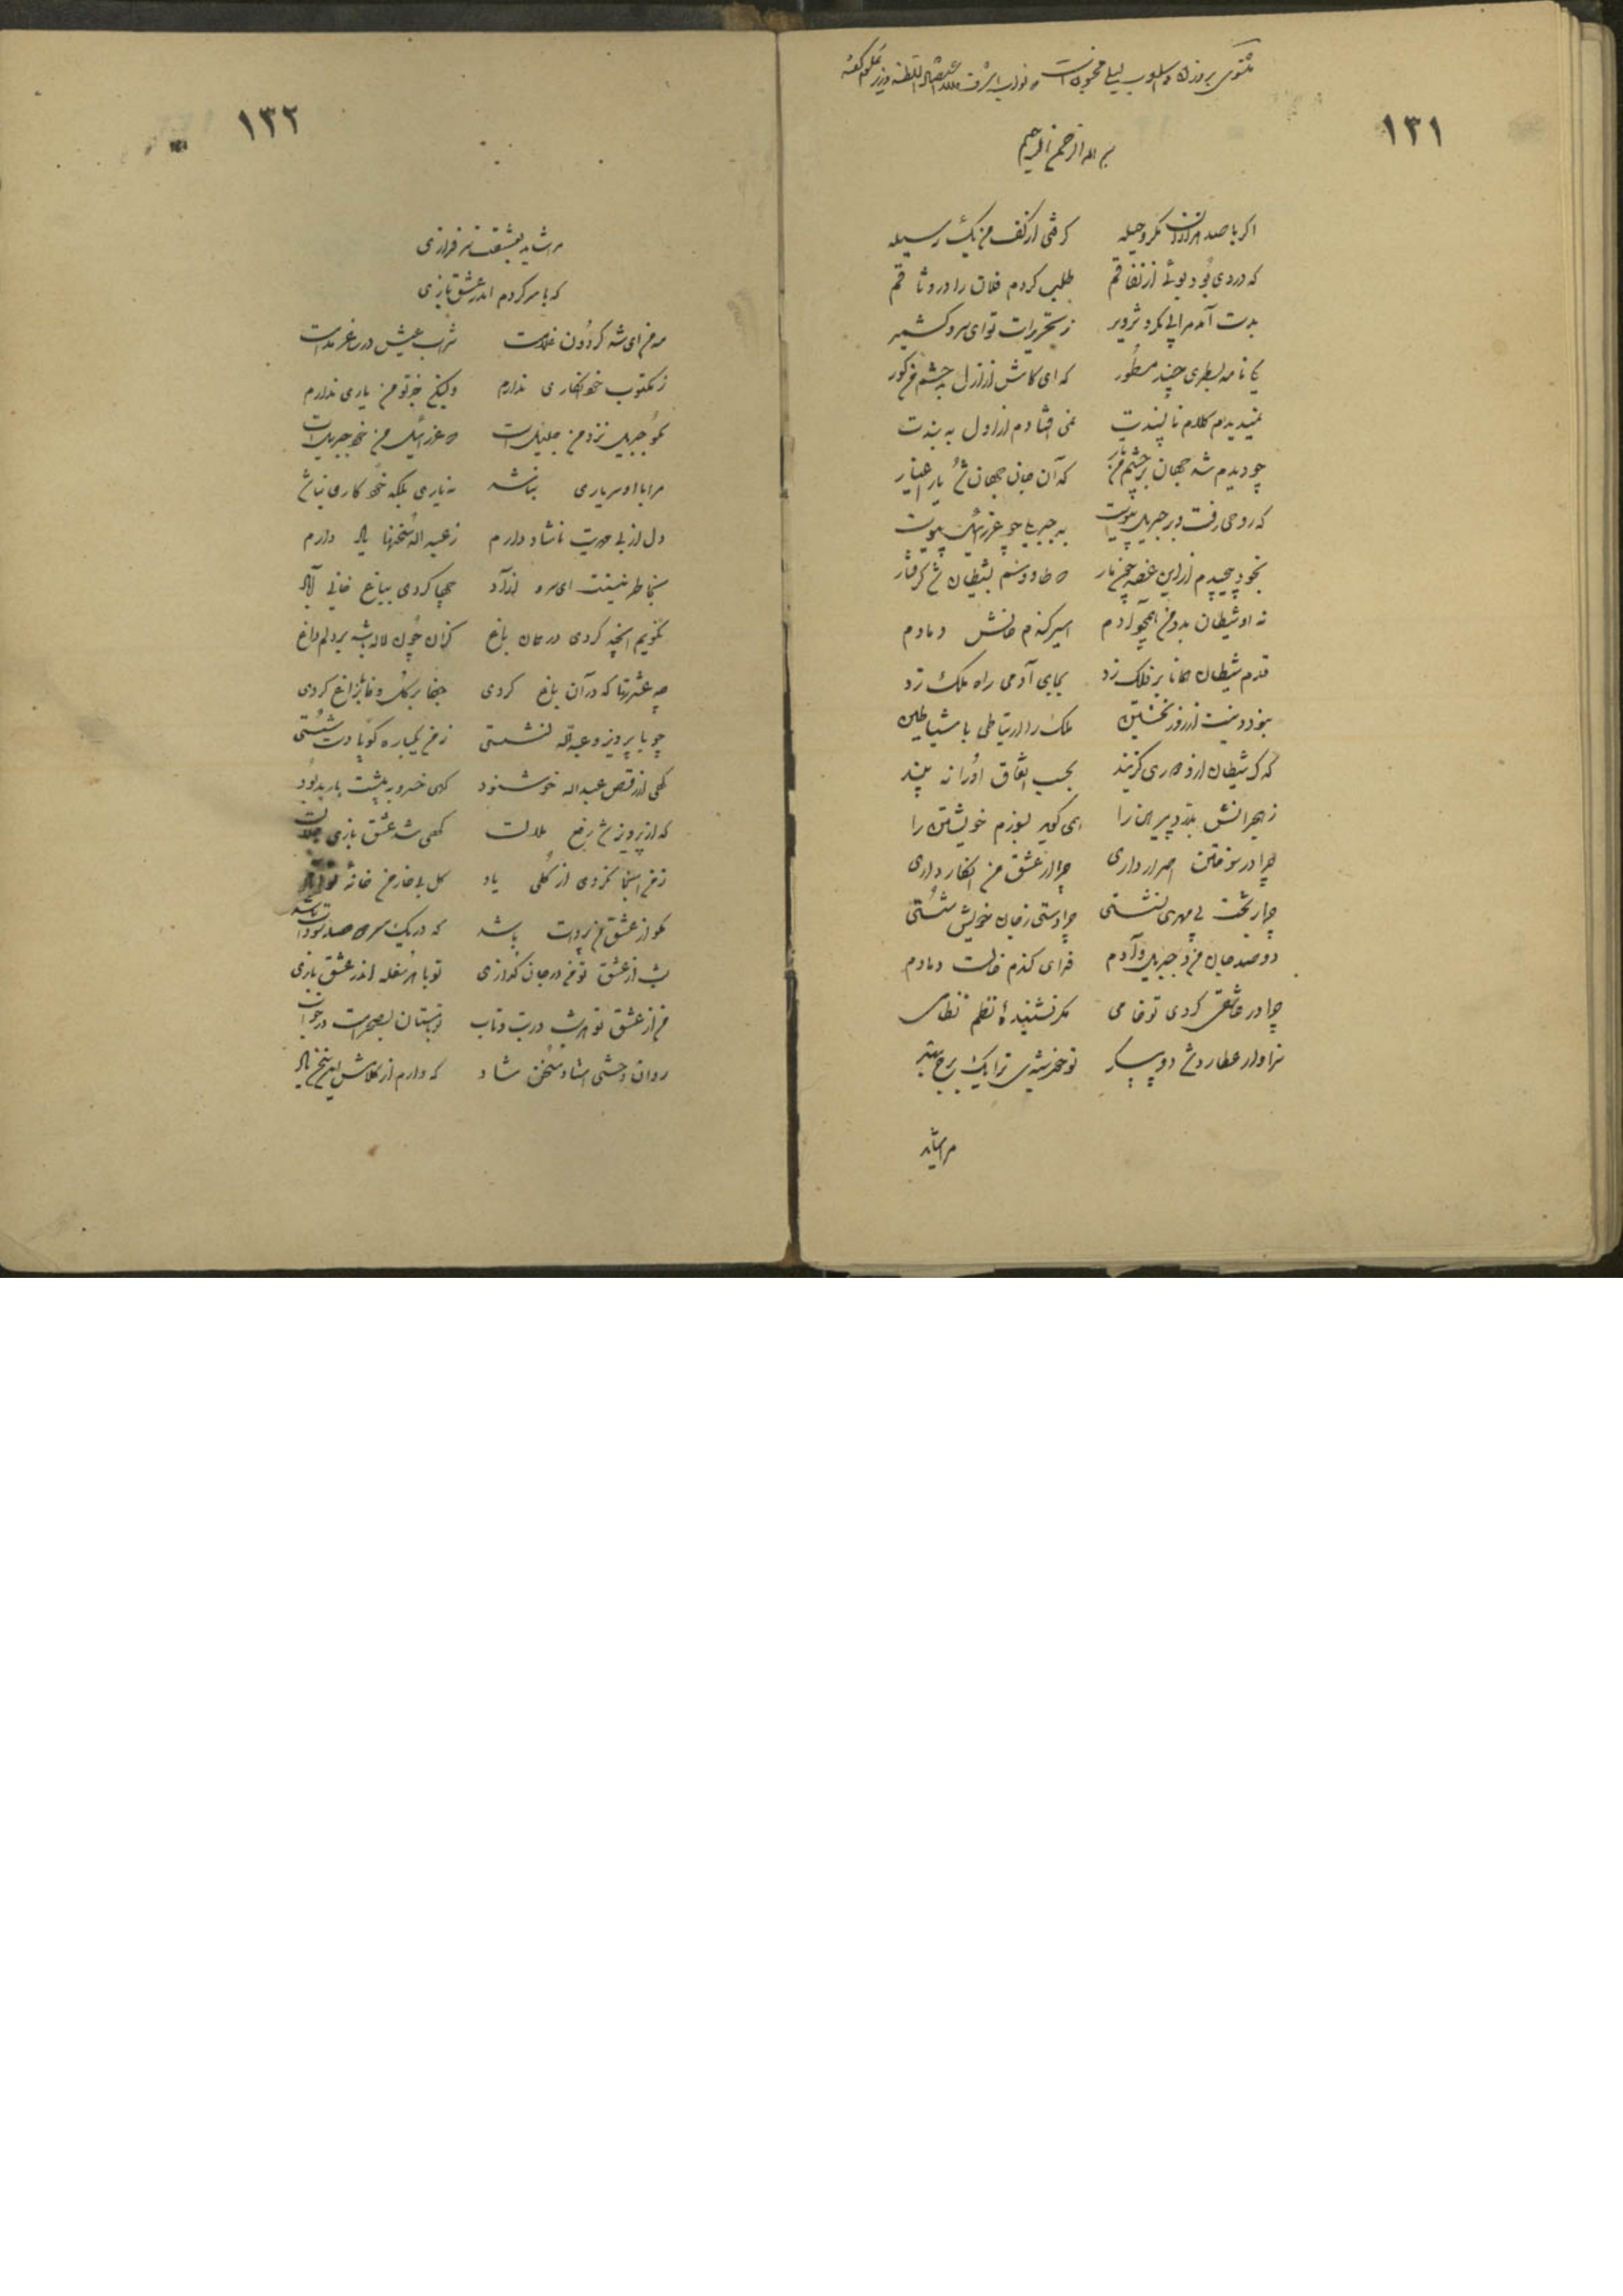 مثنوی بر وزن و اسلوب لیلی مجنون است
۱۳۱
بسم الله الرحمن الرحیم
اگر با صد هزاران مکر و حیله گرفتی از کف من یک وسیله
که در وی بود بوئی از نفاقم طلب کردم فلان را در وثاقم
بدست آمد مرا بی مکر و تزویر ز تحریرات تو ای سرو کشمیر
یکی نامه بسطری چند مسطور که ای کاش از ازل بد چشم من کور
نمیدیدم کلام ناپسندت نمی افتادم از اول به بندت
چو دیدم شد جهان بر چشم من تار که آن جان جهان شد یار اغیار
که روحی رفت و بر جبریل پیوست به جبریل چو عزرائیل پیوست
بخود پیچیدم از این غصه چون مار که طاووسم بشیطان شد گرفتار
نه او شیطان بد و من همچو آدم اسیر گندم خالش دمادم
قدم شیطان همانا بر فلک زد بجای آدمی راه ملک زد
نبود و نیست از روز نخستین ملک را ارتباطی با شیاطین
که گر شیطان از او دوری گزیند بحسب اتفاق او را نه بیند
ز هجرانش بدرد پیرهن را همی گوید بسوزم خویشتن را
چرا در سوختن اصرار داری چرا از عشق من انکار داری
چرا بر تخت بی مهری نشستی چرا دستی ز جان خویش شستی
دو صد جان من و جبریل و آدم فدای گندم خالت دمادم
چرا در عاشقی کردی تو خامی مگر نشنیدهٔ نظم نظامی
سزاوار عطارد شد دو پیکر تو خورشیدی ترا یک برج بهتر
مرا شاید
۱۳۲
مرا شاید بعشقت سرفرازی
که با سر کردم اندر عشق بازی
مه من ای شه گردون غلامت شراب عیش در ساغر مدامت
ز مکتوب خود انکاری ندارم ولیکن جز تو من یاری ندارم
مگو جبریل نزد من جلیل است که عزرائیل من خود جبرئیل است
مرا با او سر یاری نباشد نه یاری بلکه خود کاری نباشد
دل از بی مهریت ناشاد دارم ز عبدالله سخنها یاد دارم
بخاطر نیستت ای سرو آزاد چها کردی بباغ خانی آباد
نگویم آنچه کردی در میان باغ کزان چون لاله باشد بر دلم داغ
چه عشرتها که در آن باغ کردی جفا بر گل وفا بر زاغ کردی
چو با پرویز و عبدالله نشستی ز من یکباره گویا دست شستی
گهی از رقص عبدالله خوشنود گهی خسرو به پیشت باربد بود
که از پرویز شد رفع ملالت گهی شد عشق بازی
ز من اینجا نکردی از گلی یاد گل بی خار من خانه تو آباد
مگو از عشق من پروات باشد که در یک سر دو صد سودات باشد
شب از عشق تو من در جان گدازی تو با هر سفله اندر عشق بازی
من از عشق تو هر شب در تب و تاب
روان وحشی استاد سخن شاد که دارم از کلامش این سخن یاد